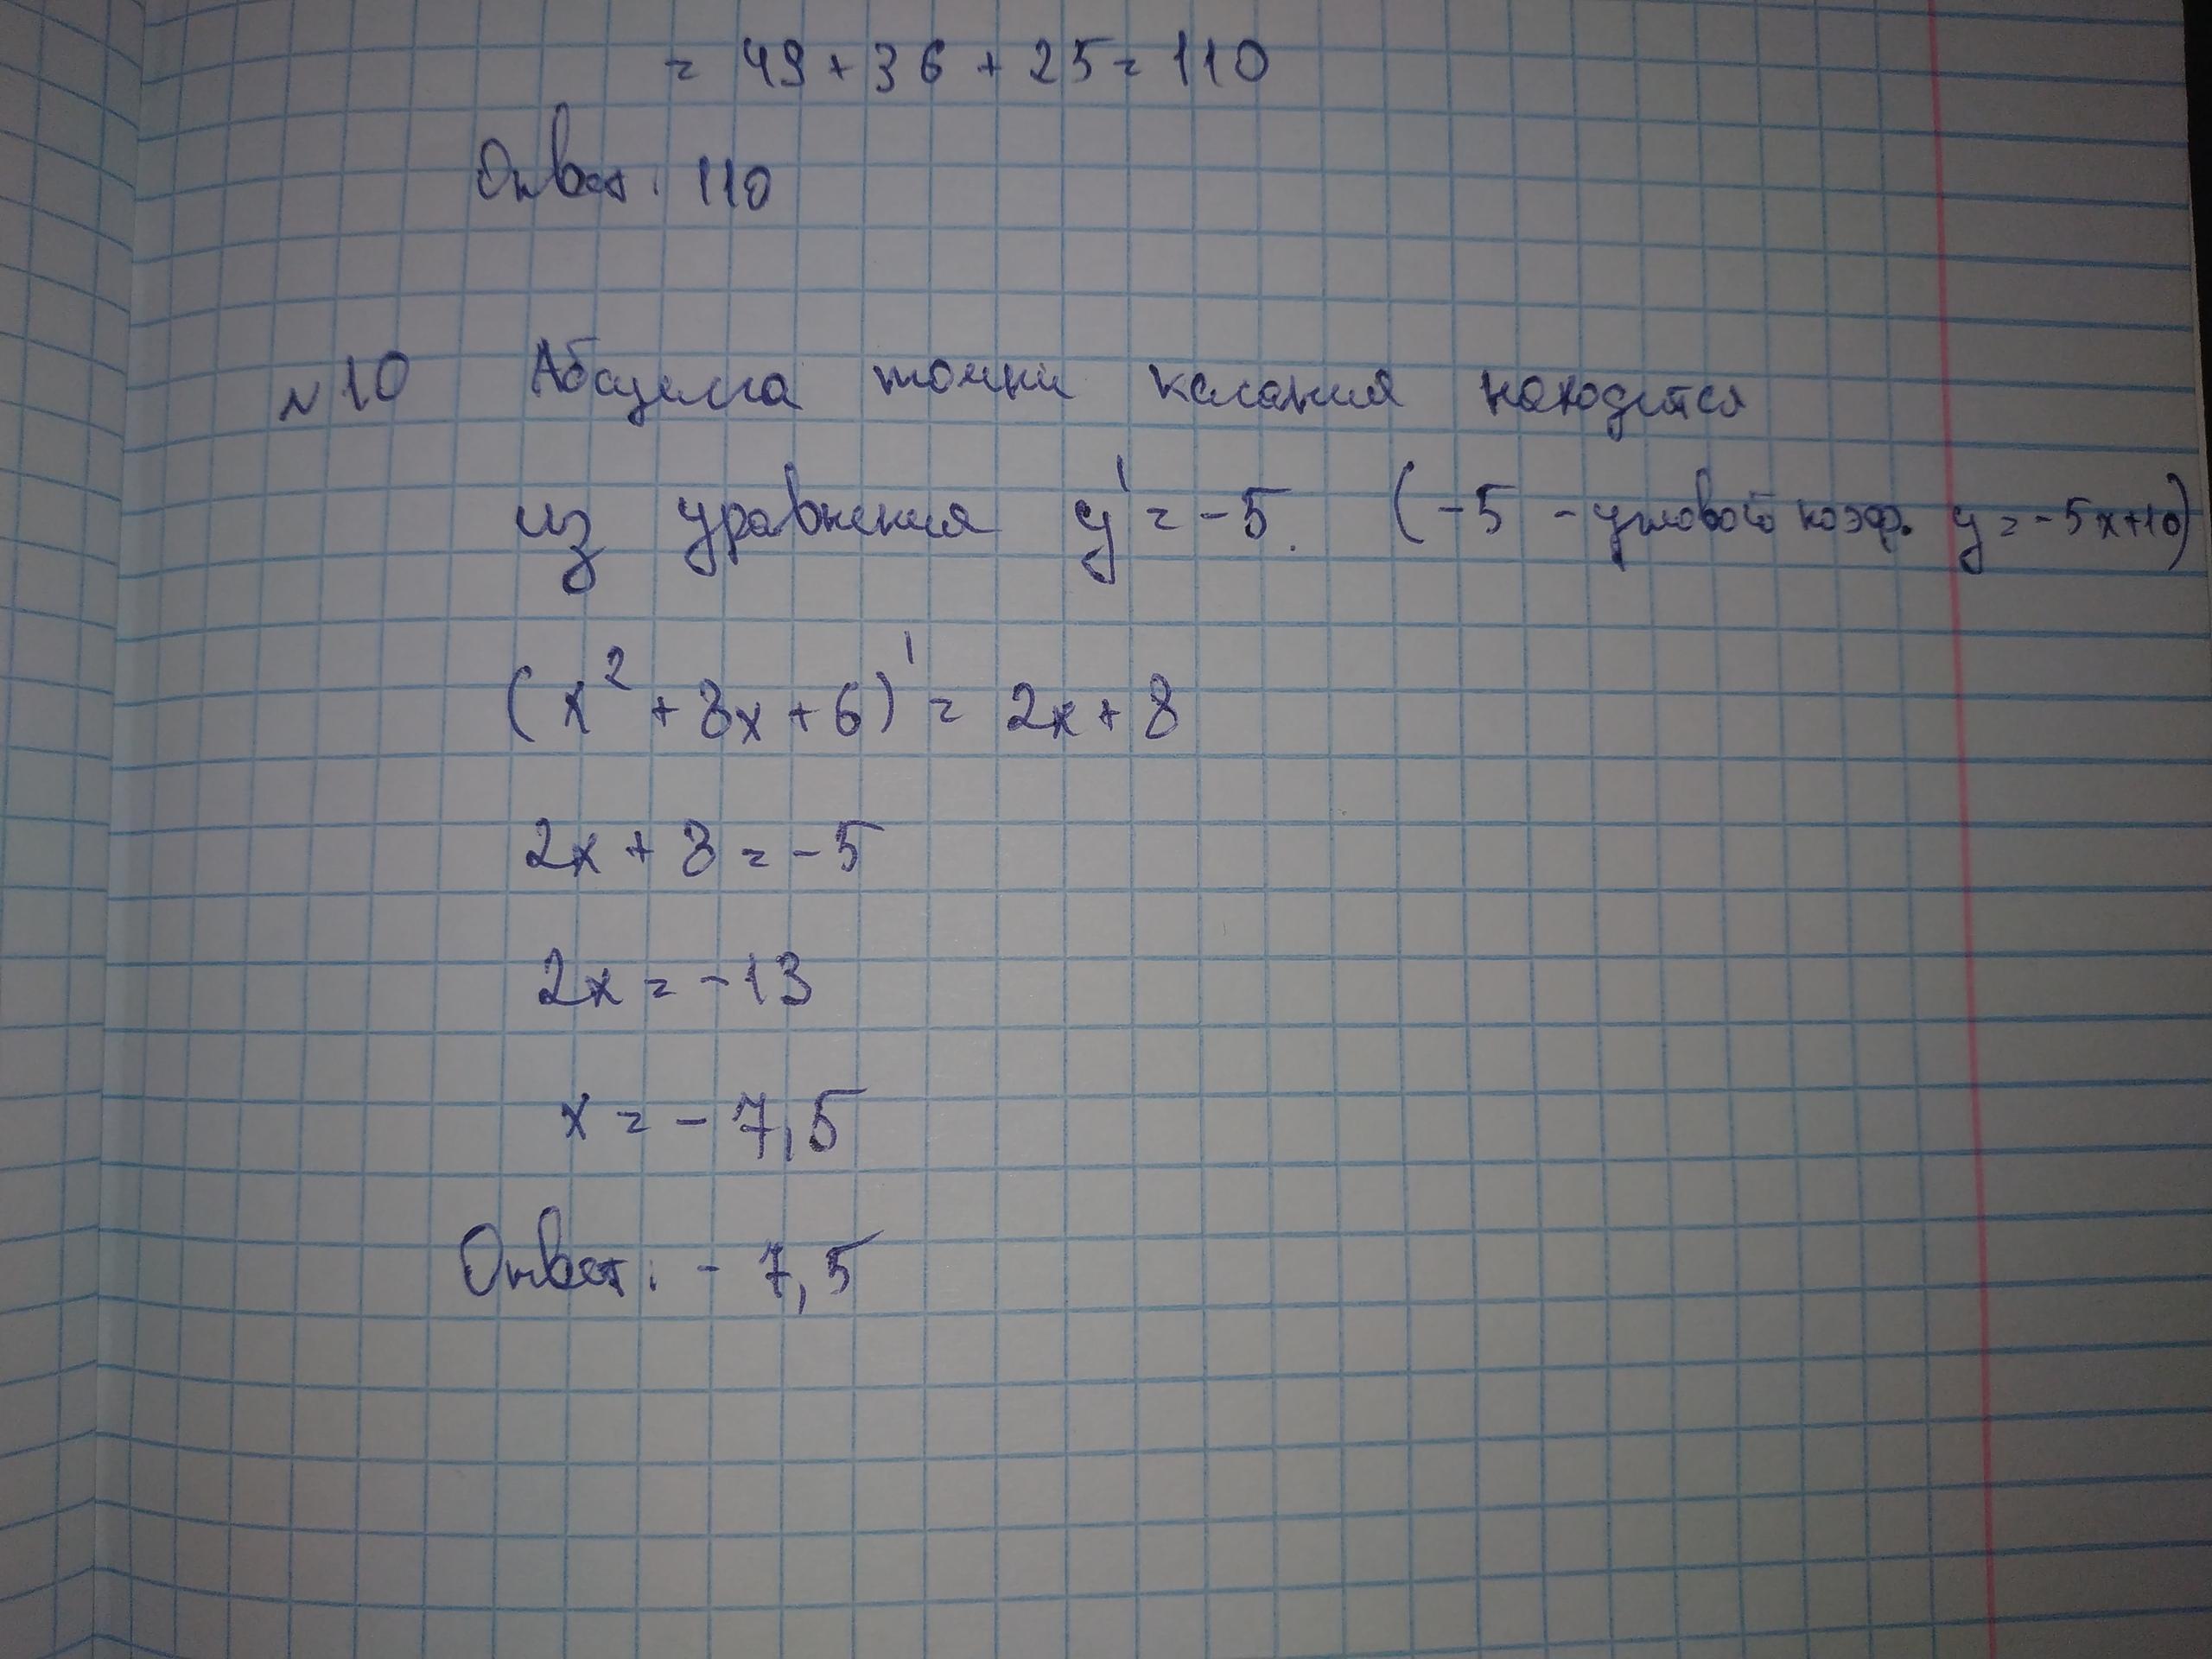 = 49 + 36 + 25 = 110
Ответ: 110
№10 Абсцисса точки касания находится
из уравнения y' = -5. (-5 - угловой коэф. y = -5x+10)
(x² + 8x + 6)' = 2x + 8
2x + 8 = -5
2x = -13
x = - 7,5
Ответ: - 7,5